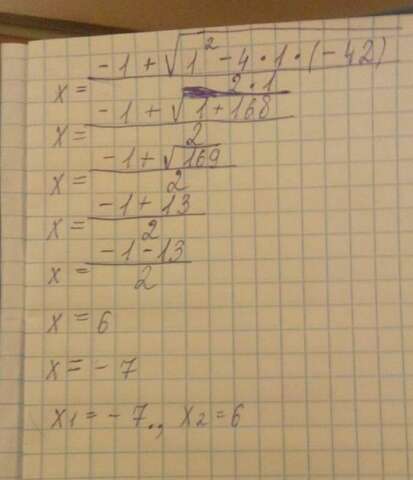 x = (-1 + √(1² - 4 · 1 · (-42))) / (2 · 1)
x = (-1 + √(1 + 168)) / 2
x = (-1 + √169) / 2
x = (-1 + 13) / 2
x = (-1 - 13) / 2
x = 6
x = - 7
x1 = - 7., x2 = 6